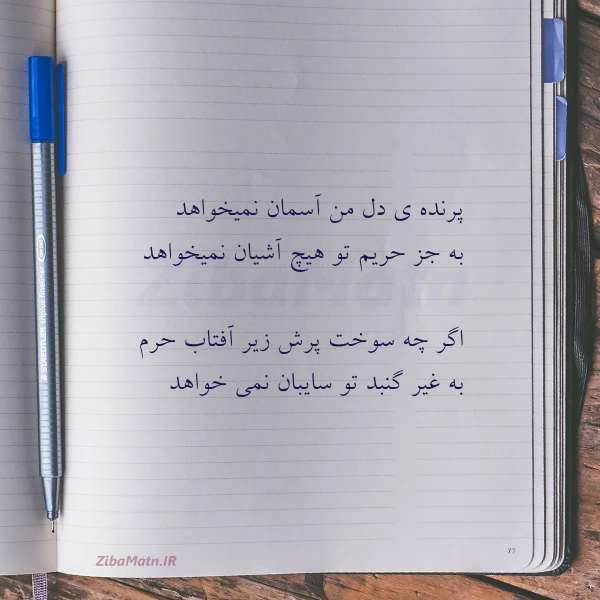 پرنده ی دل من آسمان نمیخواهد
به جز حریم تو هیچ آشیان نمیخواهد
اگر چه سوخت پرش زیر آفتاب حرم
به غیر گنبد تو سایبان نمی خواهد
ZibaMatn.IR
ZibaMatn
STAEDTLER triplus fineliner
77